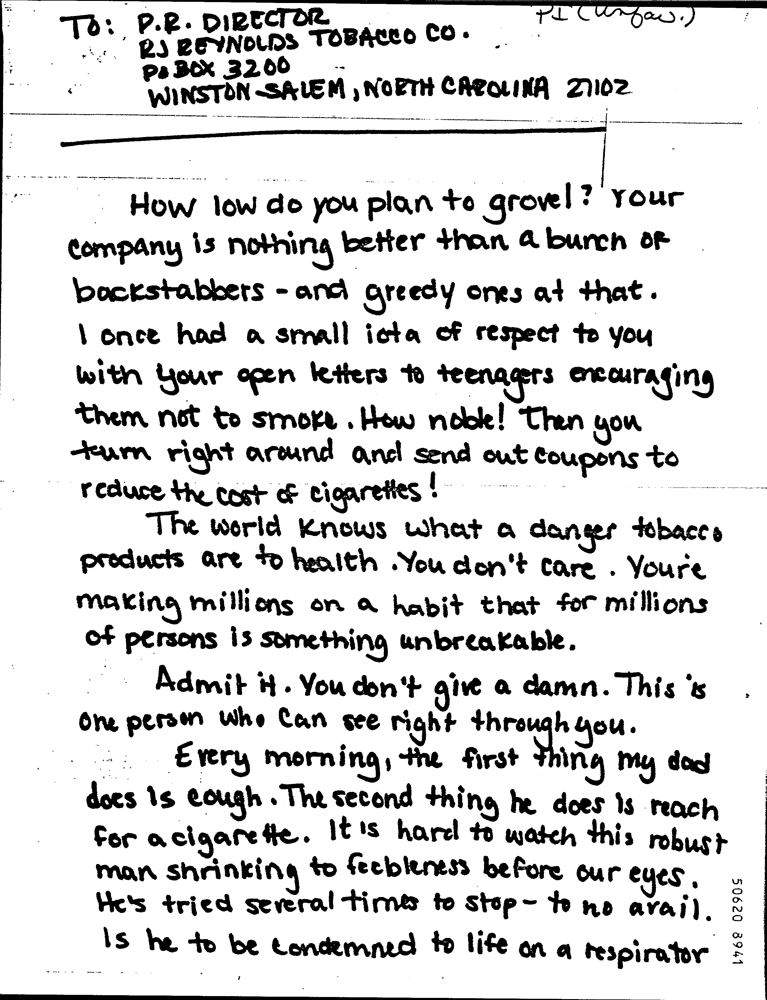 PI (Unfav.)
TO: P.R. DIRECTOR
RJ REYNOLDS TOBACCO CO.
PO BOX 3200
WINSTON-SALEM, NORTH CAROLINA 27102
How low do you plan to grovel? Your
company is nothing better than a bunch of
backstabbers - and greedy ones at that.
I once had a small iota of respect to you
with your open letters to teenagers encouraging
them not to smoke. How noble! Then you
turn right around and send out coupons to
reduce the cost of cigarettes!
The world knows what a danger tobacco
products are to health. You don't care. You're
making millions on a habit that for millions
of persons is something unbreakable.
Admit it. You don't give a damn. This is
one person who can see right through you.
Every morning, the first thing my dad
does is cough. The second thing he does is reach
for a cigarette. It is hard to watch this robust
man shrinking to feebleness before our eyes.
He's tried several times to stop - to no avail.
Is he to be condemned to life on a respirator
50620 8941